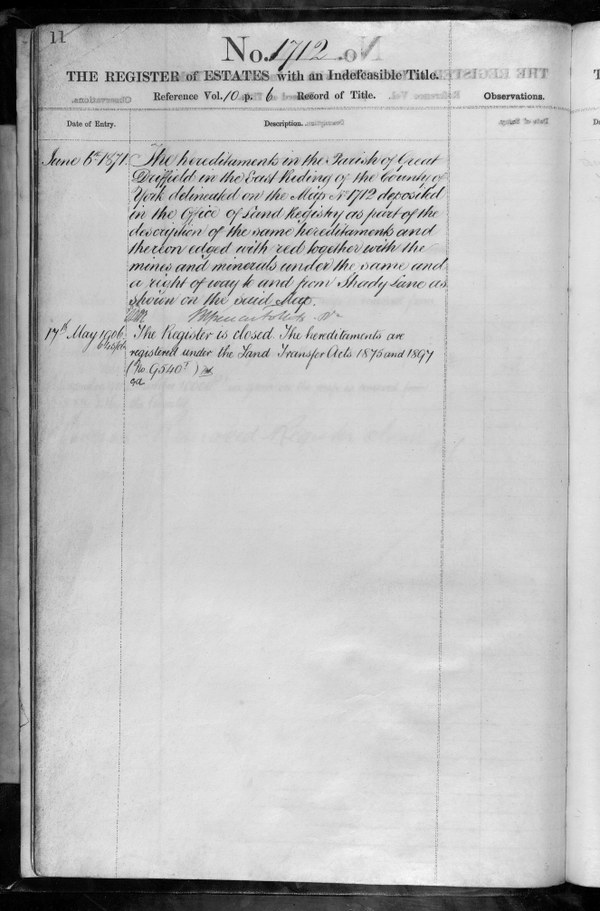 11
No. 1712
THE REGISTER of ESTATES with an Indefeasible Title.
Reference Vol. 10 p. 6 Record of Title.
Observations.
Date of Entry.
Description.
June 6th 1871. The hereditaments in the Parish of Great
Driffield in the East Riding of the County of
York delineated on the Map No 1712 deposited
in the Office of Land Registry as part of the
description of the same hereditaments and
thereon edged with red together with the
mines and minerals under the same and
a right of way to and from Shady Lane as
shown on the said Map.
17th May 1906. The Register is closed. The hereditaments are
registered under the Land Transfer Acts 1875 and 1897
(No. 9540)